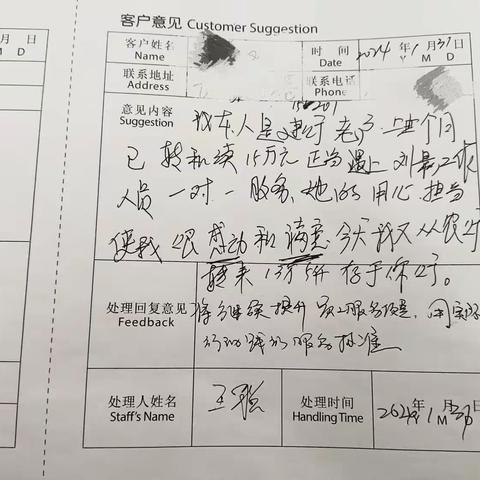 月 日
M D
客户意见 Customer Suggestion
客户姓名
Name
时 间
Date
2024年1月31日
M D
联系地址
Address
联系电话
Phone
意见内容
Suggestion
我本人是建行老户上个月
已转和续15万元正当遇上刘 工作
人员一对一服务、她的用心、担当
使我很感动和满意今天我又从农行
转来13万5千存于你行。
处理回复意见
Feedback
将继续提升员工服务质量,用实际
行动践行服务标准
处理人姓名
Staff's Name
王
处理时间
Handling Time
2024年1月31日
M D